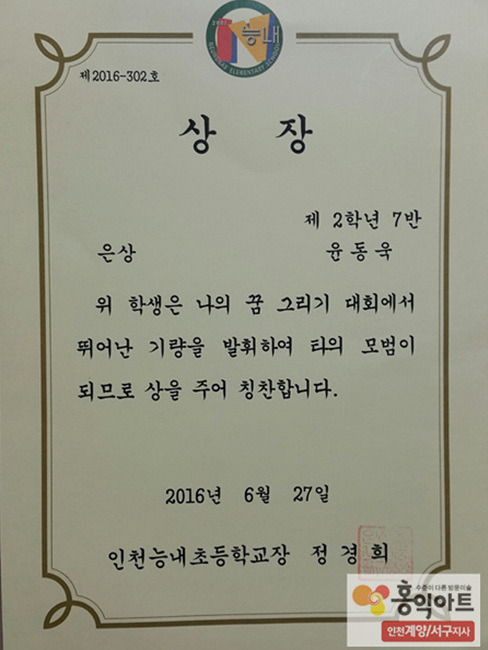 능내
NEUNGNAE ELEMENTARY SCHOOL
제2016-302호
상 장
제 2학년 7반
은상 윤동욱
위 학생은 나의 꿈 그리기 대회에서
뛰어난 기량을 발휘하여 타의 모범이
되므로 상을 주어 칭찬합니다.
2016년 6월 27일
인천능내초등학교장 정경희
수준이 다른 방문미술
홍익아트
인천계양/서구지사